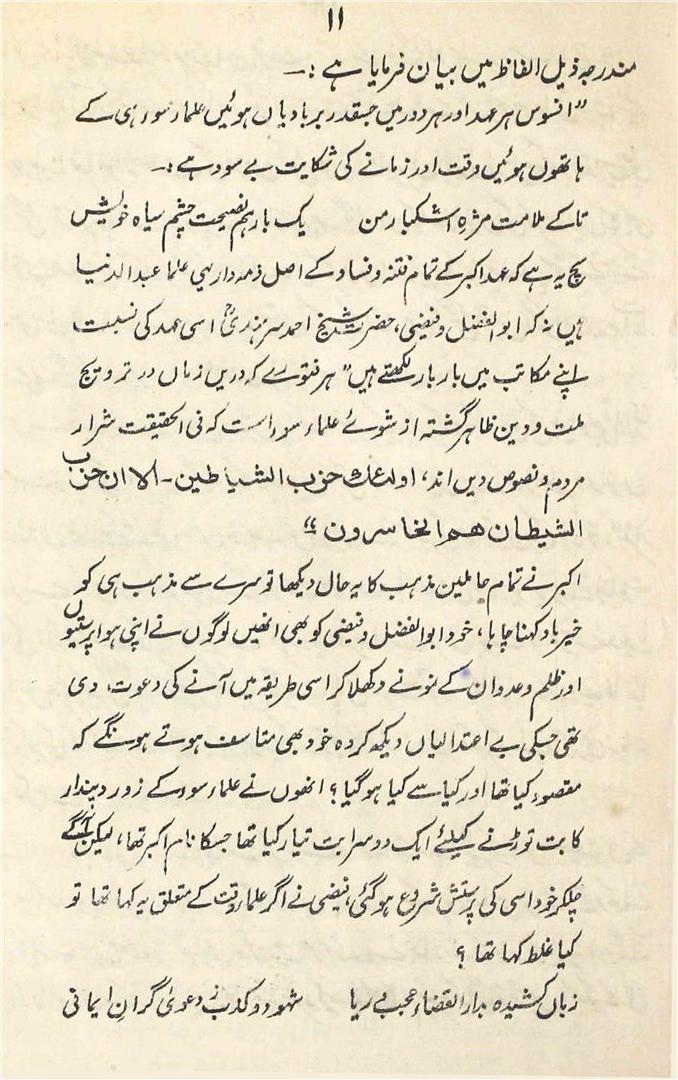 ۱۱
مندرجہ ذیل الفاظ میں بیان فرمایا ہے :۔
”افسوس ہر عہد اور ہر دور میں جسقدر بربادیاں ہوئیں علماء سوء ہی کے
ہاتھوں ہوئیں وقت اور زمانے کی شکایت بے سود ہے :۔
تاکے ملامت مژہ اشکبار من یک بار ہم نصیحت چشم سیاہ خویش
سچ یہ ہے کہ عہد اکبر کے تمام فتنہ و فساد کے اصل ذمہ دار یہی علما عبد الدنیا
ہیں نہ کہ ابو الفضل و فیضی، حضرت شیخ احمد سرہندیؒ اسی عہد کی نسبت
اپنے مکاتب میں بار بار لکھتے ہیں” ہر فتورے کہ دریں زماں در ترویج
ملت و دین ظاہر گشتہ از شوئے علماء سوء است کہ فی الحقیقت شرار
مردم و نصوص دیں اند، اولئک حزب الشیاطین۔ الا ان حزب
الشیطان ھم الخاسرون“
اکبر نے تمام حاملین مذہب کا یہ حال دیکھا تو سرے سے مذہب ہی کو
خیرباد کہنا چاہا، خود ابوالفضل و فیضی کو بھی انھیں لوگوں نے اپنی ہوا پرستیوں
اور ظلم و عدوان کے نمونے دکھلا کر اسی طریقہ میں آنے کی دعوت دی
تھی جسکی بے اعتدالیاں دیکھ کر وہ خود بھی متاسف ہوتے ہونگے کہ
مقصود کیا تھا اور کیا سے کیا ہو گیا؟ انھوں نے علماء سوء کے زور دیندار
کا بت توڑنے کیلئے ایک دوسرا بت تیار کیا تھا جسکا نام اکبر تھا، لیکن آگے
چلکر خود اسی کی پرستش شروع ہو گئی، فیضی نے اگر علماء وقت کے متعلق یہ کہا تھا تو
کیا غلط کہا تھا ؟
زباں کشیدہ بدار القضاء عجب بے ریا شہود کذب ز دعویٰ گران ایمانی